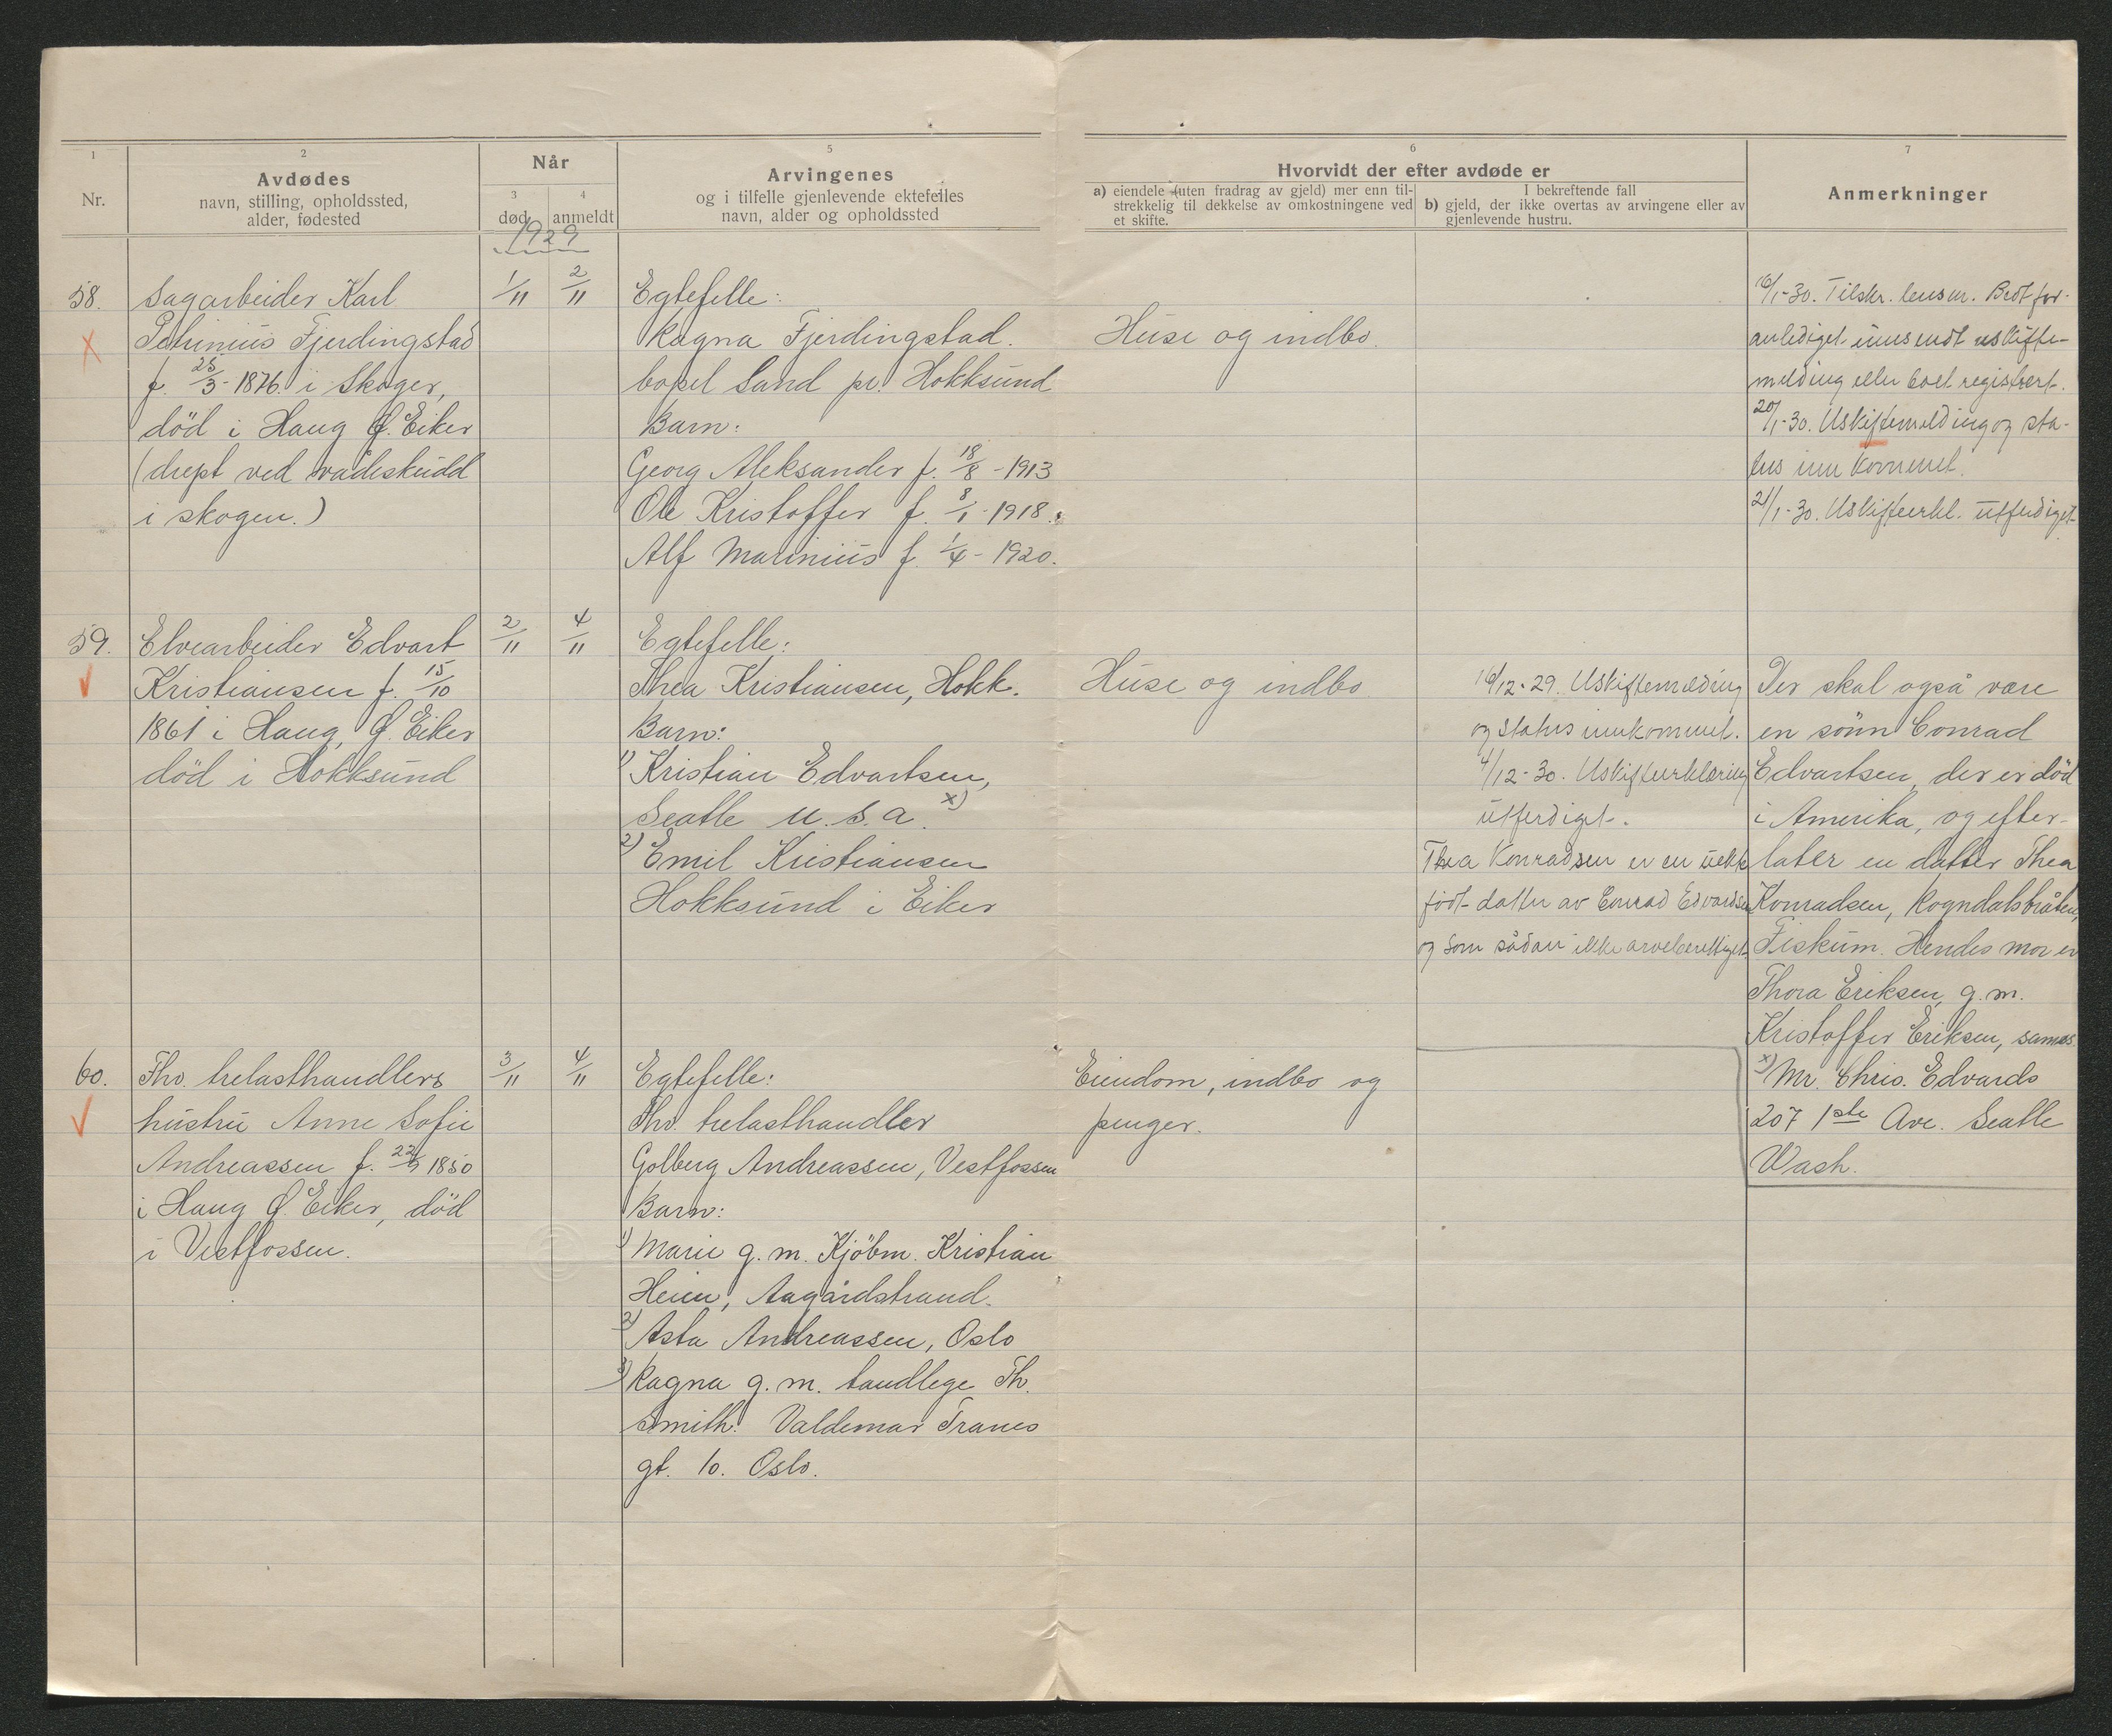 1
2
Når
5
6
7
Nr.
Avdødes
navn, stilling, opholdssted,
alder, fødested
3
død
4
anmeldt
1929
Arvingenes
og i tilfelle gjenlevende ektefelles
navn, alder og opholdssted
Hvorvidt der efter avdøde er
a) eiendele (uten fradrag av gjeld) mer enn til-
strekkelig til dekkelse av omkostningene ved
et skifte.
I bekreftende fall
b) gjeld, der ikke overtas av arvingene eller av
gjenlevende hustru.
Anmerkninger
58.
X
Sagarbeider Karl
Petrinius Fjerdingstad
f. 25/3-1876 i Skoger,
död i Haug Ø. Eiker
(drept ved vådeskudd
i skogen.)
1/11
2/11
Egtefelle:
Ragna Fjerdingstad.
bopel Sand pr. Hokksund
Barn:
Georg Aleksander f. 18/8-1913
Ole Kristoffer f. 8/1-1918.
Alf Marinius f. 1/4-1920.
Huse og indbo.
16/1-30. Tilskr. lensm. Bedt for-
anlediget innsendt uskifte-
melding eller boet registrert.
20/1-30. Uskiftemelding og sta-
tus innkommet.
21/1-30. Uskifteerkl. utferdiget
59.
Elvearbeider Edvart
Kristiansen f. 15/10
1861 i Haug, Ø. Eiker
död i Hokksund
2/11
4/11
Egtefelle:
Thea Kristiansen, Hokk.
Barn:
1) Kristian Edvartsen,
Seatle U.S.A. x)
2) Emil Kristiansen
Hokksund i Eiker
Huse og indbo
16/12-29. Uskiftemelding
og status innkommet.
4/12-30. Uskifteerklæring
utferdiget.
Thea Konradsen er en uekte
født datter av Conrad Edvardsen
og som sådan ikke arveberettiget.
Der skal også være
en sönn Conrad
Edvartsen, der er död
i Amerika, og efter-
later en datter Thea
Konradsen, Rogndalsbråten,
Fiskum. Hendes mor er
Thora Eriksen, g.m.
Kristoffer Eriksen, sammes.
x) Mr. Chris. Edvards
207 1ste Ave. Seatle
Wash.
60.
Fhv. trelasthandlers
hustru Anne Sofie
Andreassen f. 22/9 1850
i Haug Ø. Eiker, död
i Vestfossen.
3/11
4/11
Egtefelle:
Fhv. trelasthandler
Golberg Andreassen, Vestfossen
Barn:
1) Marie g.m. Kjöbm. Kristian
Heien, Aagårdstrand.
2) Asta Andreassen, Oslo
3) Ragna g.m. tandlege Th.
Smith. Valdemar Tranes
gt. 10. Oslo.
Eiendom, indbo og
penger.